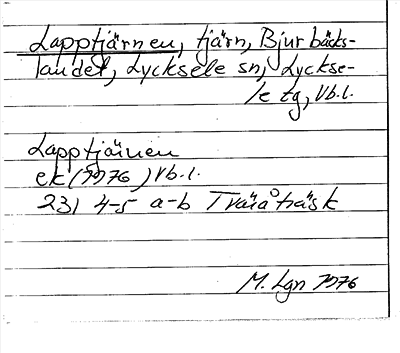 Lapptjärnen, tjärn, Bjurbäcks-
landet, Lycksele sn, Lyckse-
le tg, Vb.l.
Lapptjärnen
ek (1976) Vb.l.
231 4-5 a-b Tväråträsk
M. Lgn 1976